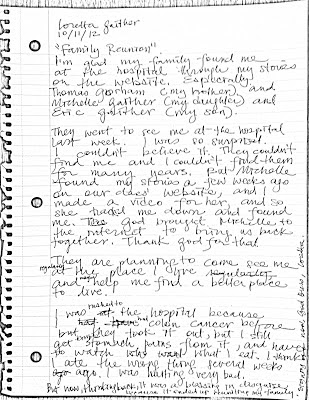 Loretta Gaither
10/11/12
"Family Reunion"
I'm glad my family found me
at the hospital through my stories
on the website. Especially
Thomas Gorham (my brother) and
Michelle Gaither (my daughter) and
Eric Gaither (my son).
They went to see me at the hospital
last week. I was so surprised.
I couldn't believe it. They couldn't
find me and I couldn't find them
for many years. But Michelle
found my stories a few weeks ago
on our class' website, and I
made a video for her, and so
she tracked me down and found
me. God brought Michelle to
the internet to bring us back
together. Thank God for that
They are planning to come see me
regularly
at the place I live
and help me find a better place
to live.
I was at the hospital because
I had colon cancer before
but they took it out, but I still
get stomach pains from it, and have
to watch what I eat. I think
I ate the wrong thing several weeks
ago. I was hurting very bad.
But now, thinking back, it was a blessing in disguise
because it ended up reuniting my family.